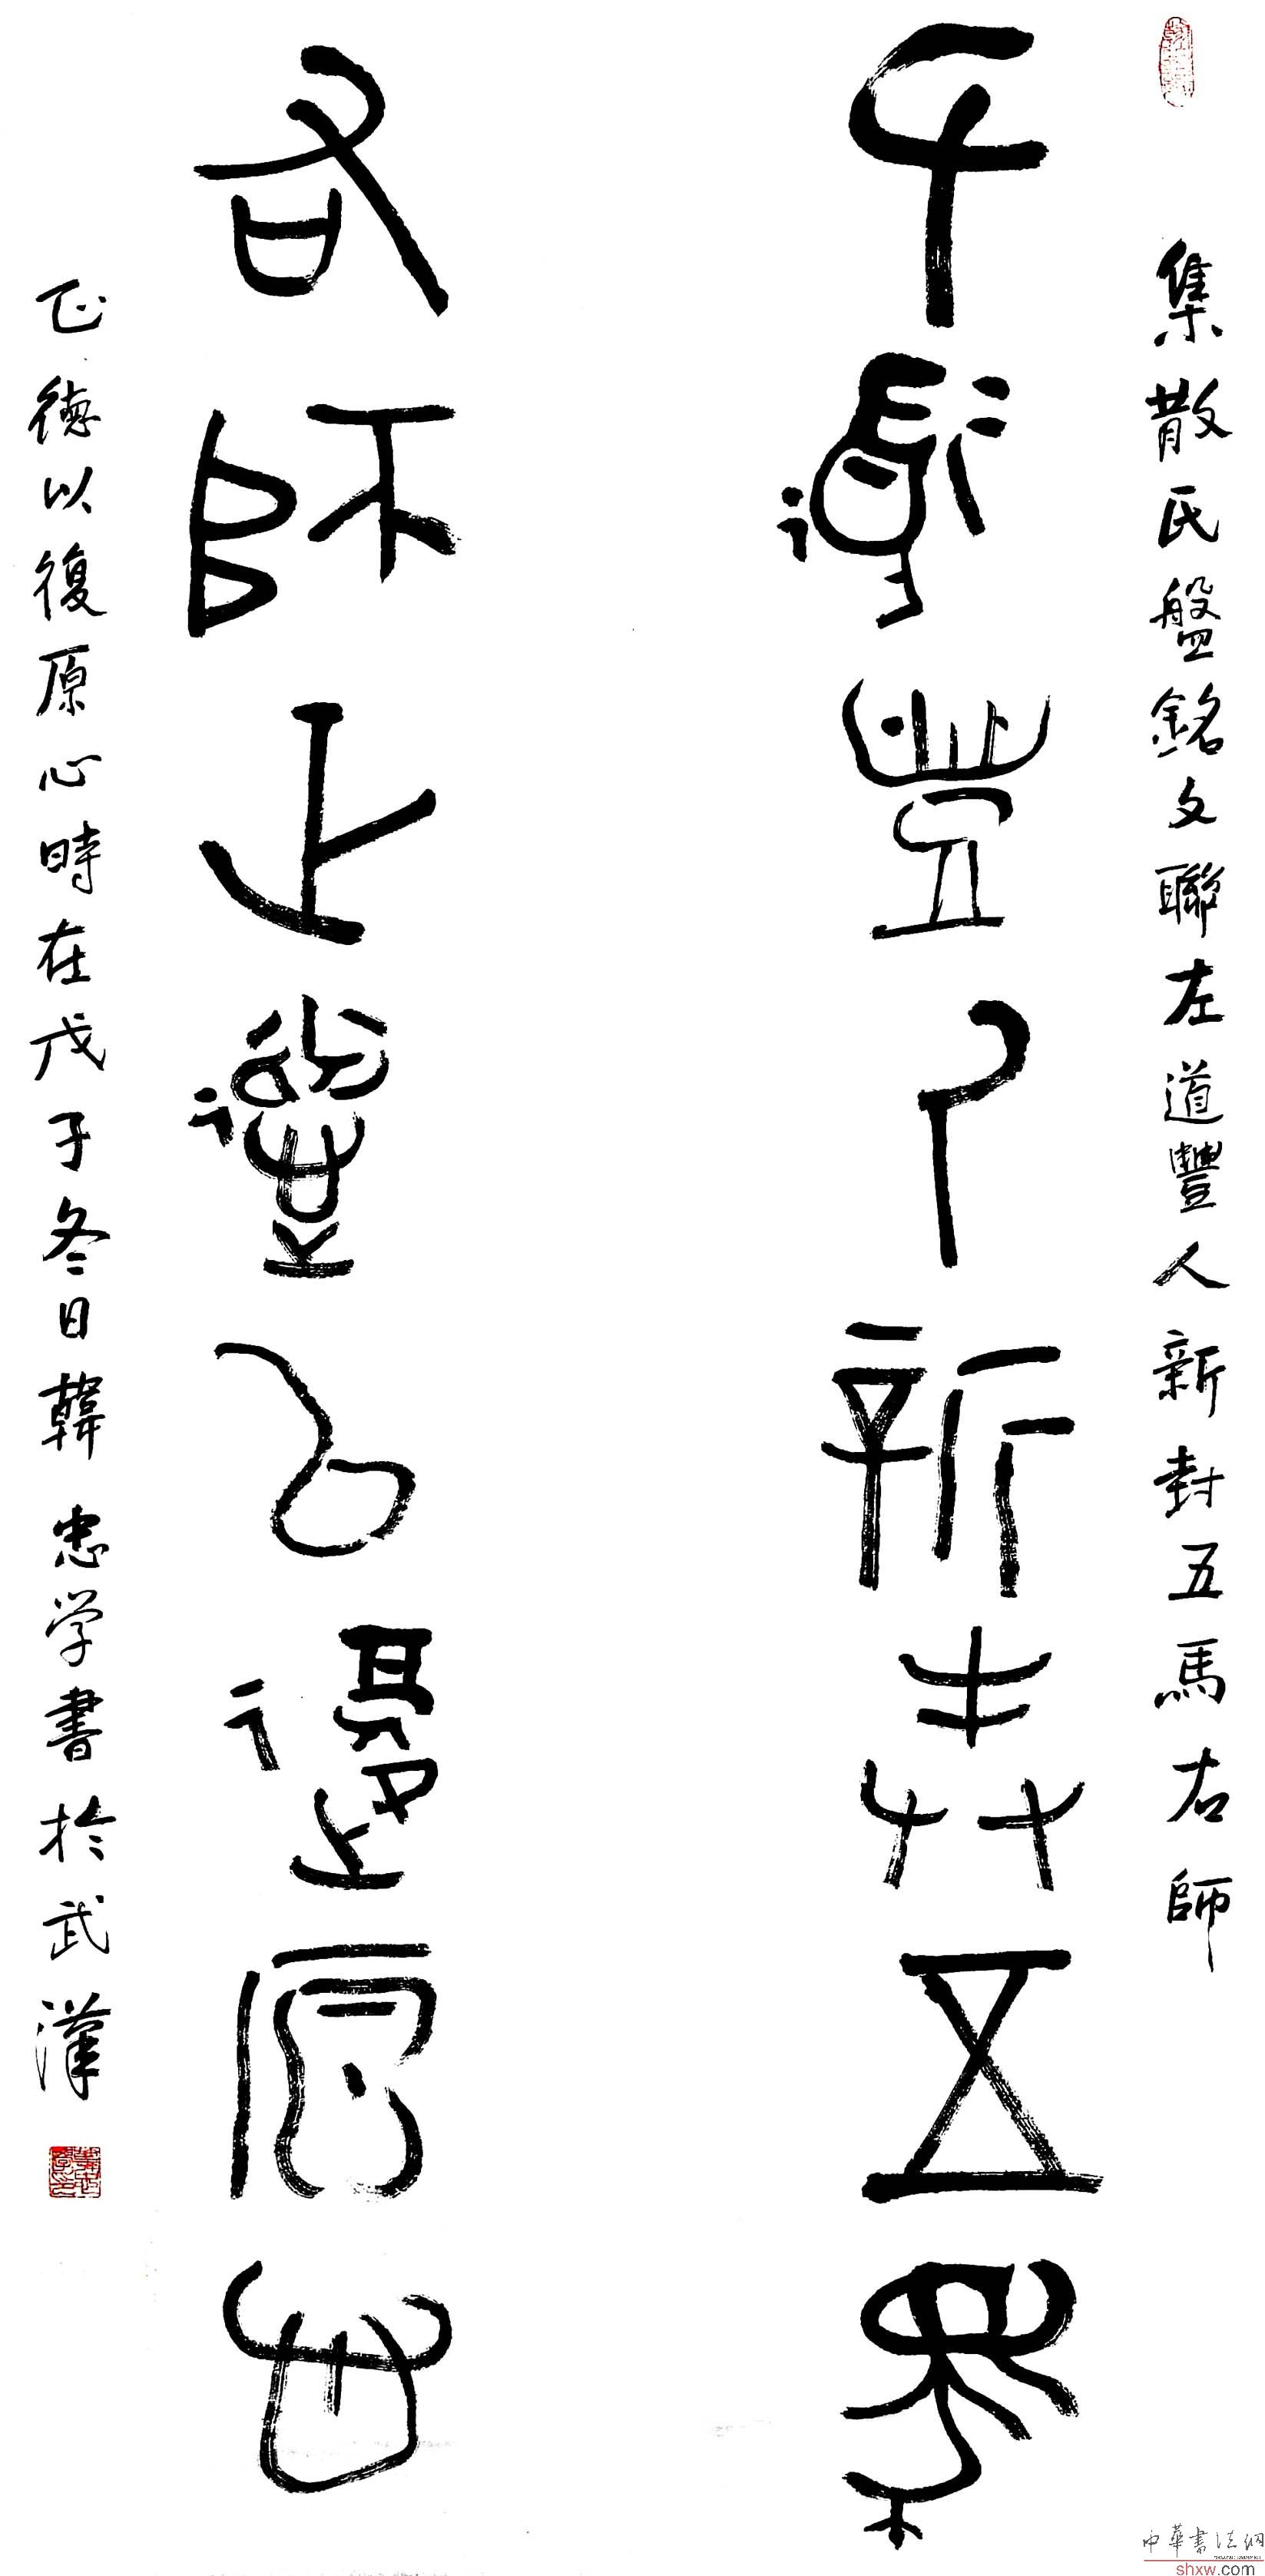 集散氏盤銘文聯左道豐人新封五馬右師
左道豐人新封五馬
右師正德以復原心
正德以復原心時在戊子冬日韓忠学書於武漢
中華書法網
shxw.com